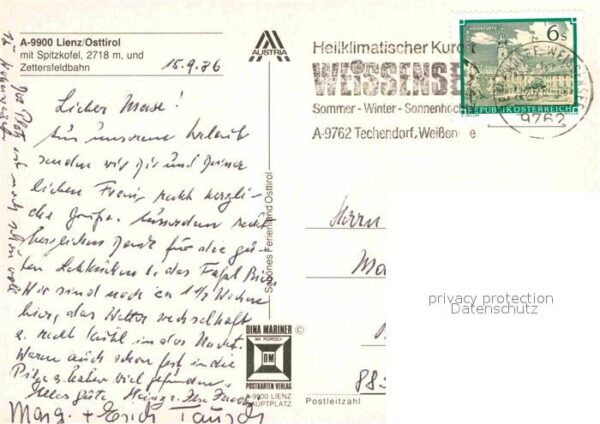 A-9900 Lienz/Osttirol
mit Spitzkofel, 2718 m, und
Zettersfeldbahn
15.9.86
Lieber Max!
Aus unserem Urlaub
senden wir Dir und Deiner
lieben Frau, recht herzli-
che Grüße. Ausserdem recht
herzlichen Dank für die gu-
ten u. das Faßl Bier.
Wir sind noch ca 1 1/2 Wochen
hier, das Wetter wechselhaft
u. recht kühl in der Nacht.
Waren auch schon fest in die
Pilze u. haben viel gefunden.
Alles Gute,
Marg. + Erich
Der Platz ist noch schön voll
Schönes Ferienland Osttirol
AUSTRIA
DINA MARINER ©
INH. POSPESCH
DM
POSTKARTEN VERLAG
A-9900 LIENZ
HAUPTPLATZ
Heilklimatischer Kurort
WEISSENSEE
Sommer - Winter - Sonnenhoch
A-9762 Techendorf, Weißensee
6 s
REPUBLIK ÖSTERREICH
9762
Herrn
Ma
88
Postleitzahl
privacy protection
Datenschutz